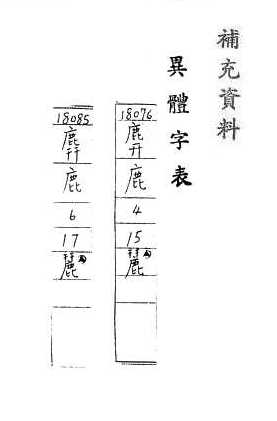 補充資料
異體字表
18076
鹿
4
15
18085
麉
鹿
6
17